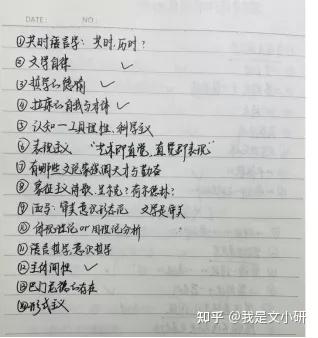 DATE: NO:
①共时语言学：共时，历时？
②文学自律 ✓
③哲学的终结 ✓
④拉康的自我与主体 ✓
⑤认知—工具理性，科学主义
⑥表现主义 "艺术即直觉，直觉即表现"
⑦有哪些文论家强调天才与勤奋
⑧象征主义诗歌，兰波？有本雅明？
⑨西马：审美意识形态论 文学是审美
⑩ 传统理论 or 用理论分析
⑪语言哲学 意识哲学
⑫主体间性 ✓
⑬巴门尼德的存在
⑭形式主义
知乎 @我是文小研